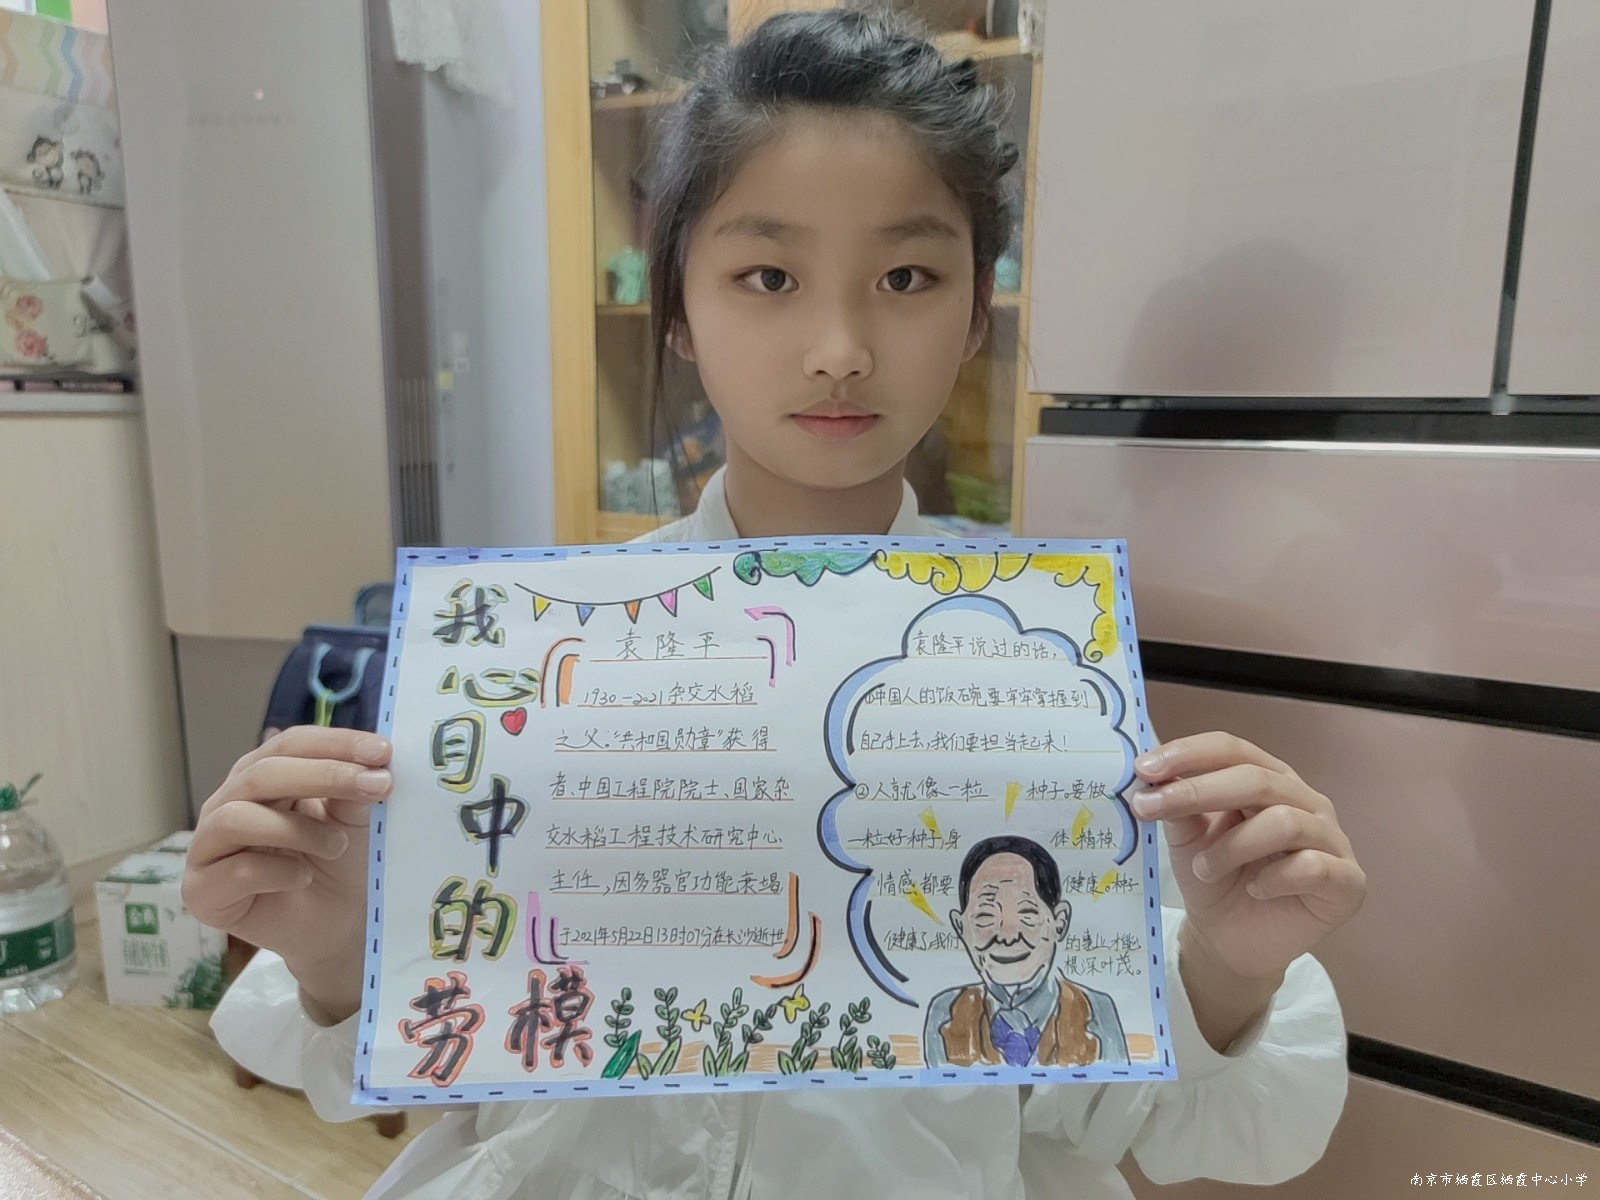 我心目中的
劳模
袁隆平
1930-2021杂交水稻
之父。“共和国勋章”获得
者、中国工程院院士、国家杂
交水稻工程技术研究中心
主任,因多器官功能衰竭
于2021年5月22日13时07分在长沙逝世
袁隆平说过的话,
①中国人的饭碗要牢牢掌握到
自己手上去,我们要担当起来!
②人就像一粒种子。要做
一粒好种子,身体、精神、
情感都要健康。种子
健康了,我们的事业才能
根深叶茂。
金典
南京市栖霞区栖霞中心小学